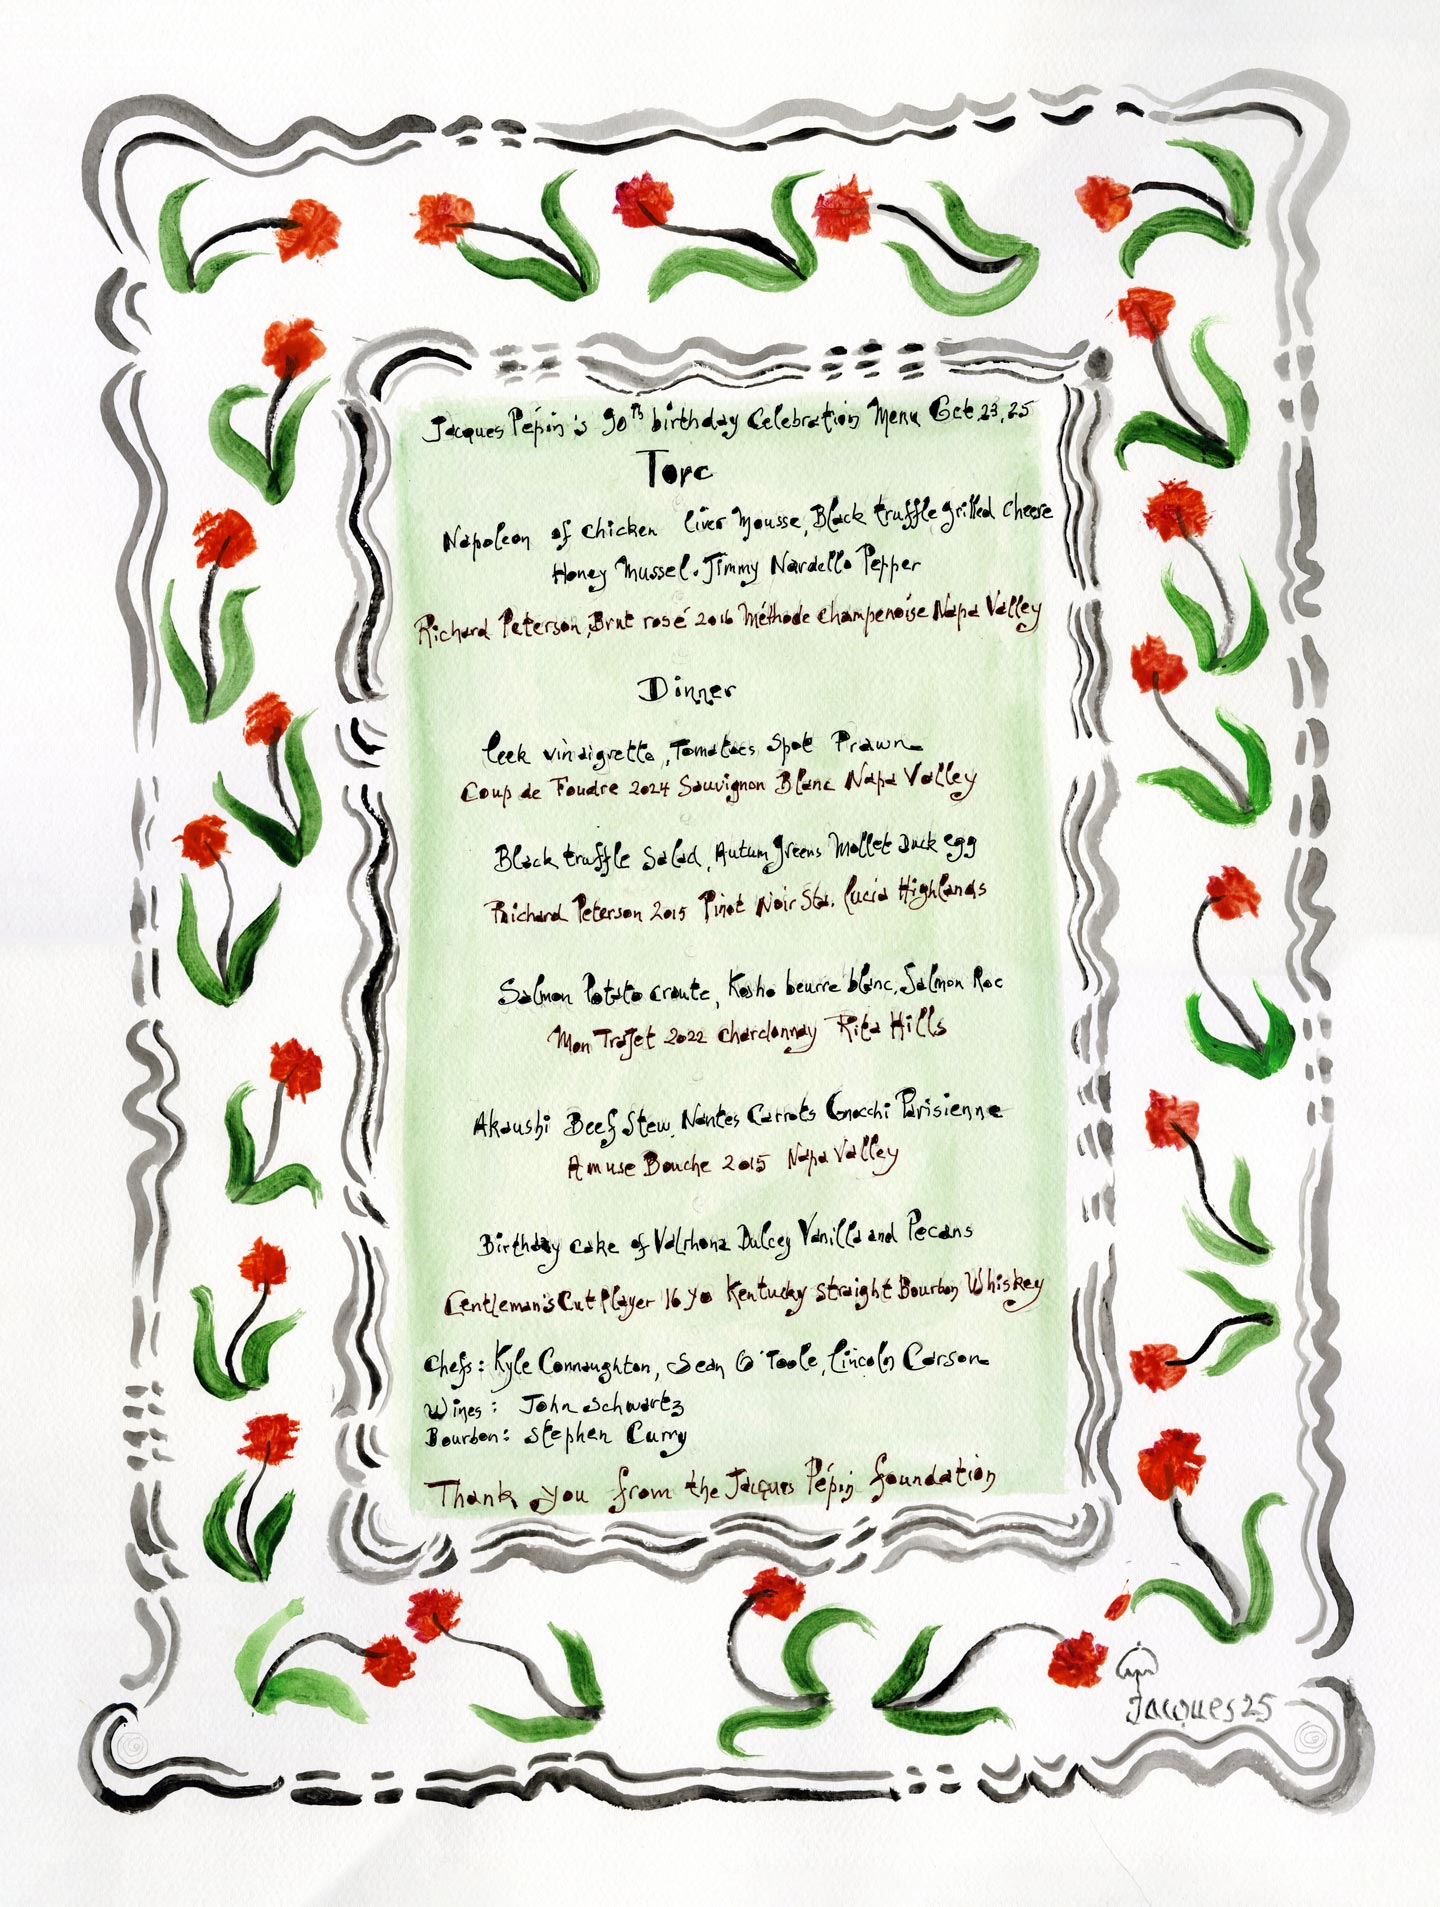 Jacques Pépin's 90th birthday Celebration Menu Oct 23, 25
Torc
Napoleon of Chicken liver Mousse, Black truffle grilled cheese
Honey Mussel. Jimmy Nardello Pepper
Richard Peterson Brut rosé 2016 Méthode Champenoise Napa Valley
Dinner
leek vinaigrette, Tomatoes Spot Prawn
Coup de Foudre 2024 Sauvignon Blanc Napa Valley
Black truffle Salad, Autum greens Mollet Duck egg
Richard Peterson 2015 Pinot Noir Sta. lucia Highlands
Salmon Potato croute, Kosho beurre blanc, Salmon Roe
Mon Trajet 2022 chardonnay Rita Hills
Akaushi Beef Stew, Nantes Carrots Gnocchi Parisienne
Amuse Bouche 2015 Napa Valley
Birthday cake of Valrhona Dulcey Vanilla and Pecans
Gentleman's Cut Player 16 yo Kentucky Straight Bourbon Whiskey
Chefs: Kyle Connaughton, Sean O'Toole, Lincoln Carson
Wines: John Schwartz
Bourbon: Stephen Curry
Thank you from the Jacques Pépin foundation
Jacques 25